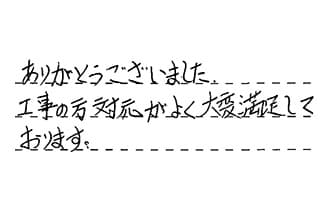 ありがとうございました.
工事の方対応がよく大変満足して
おります。